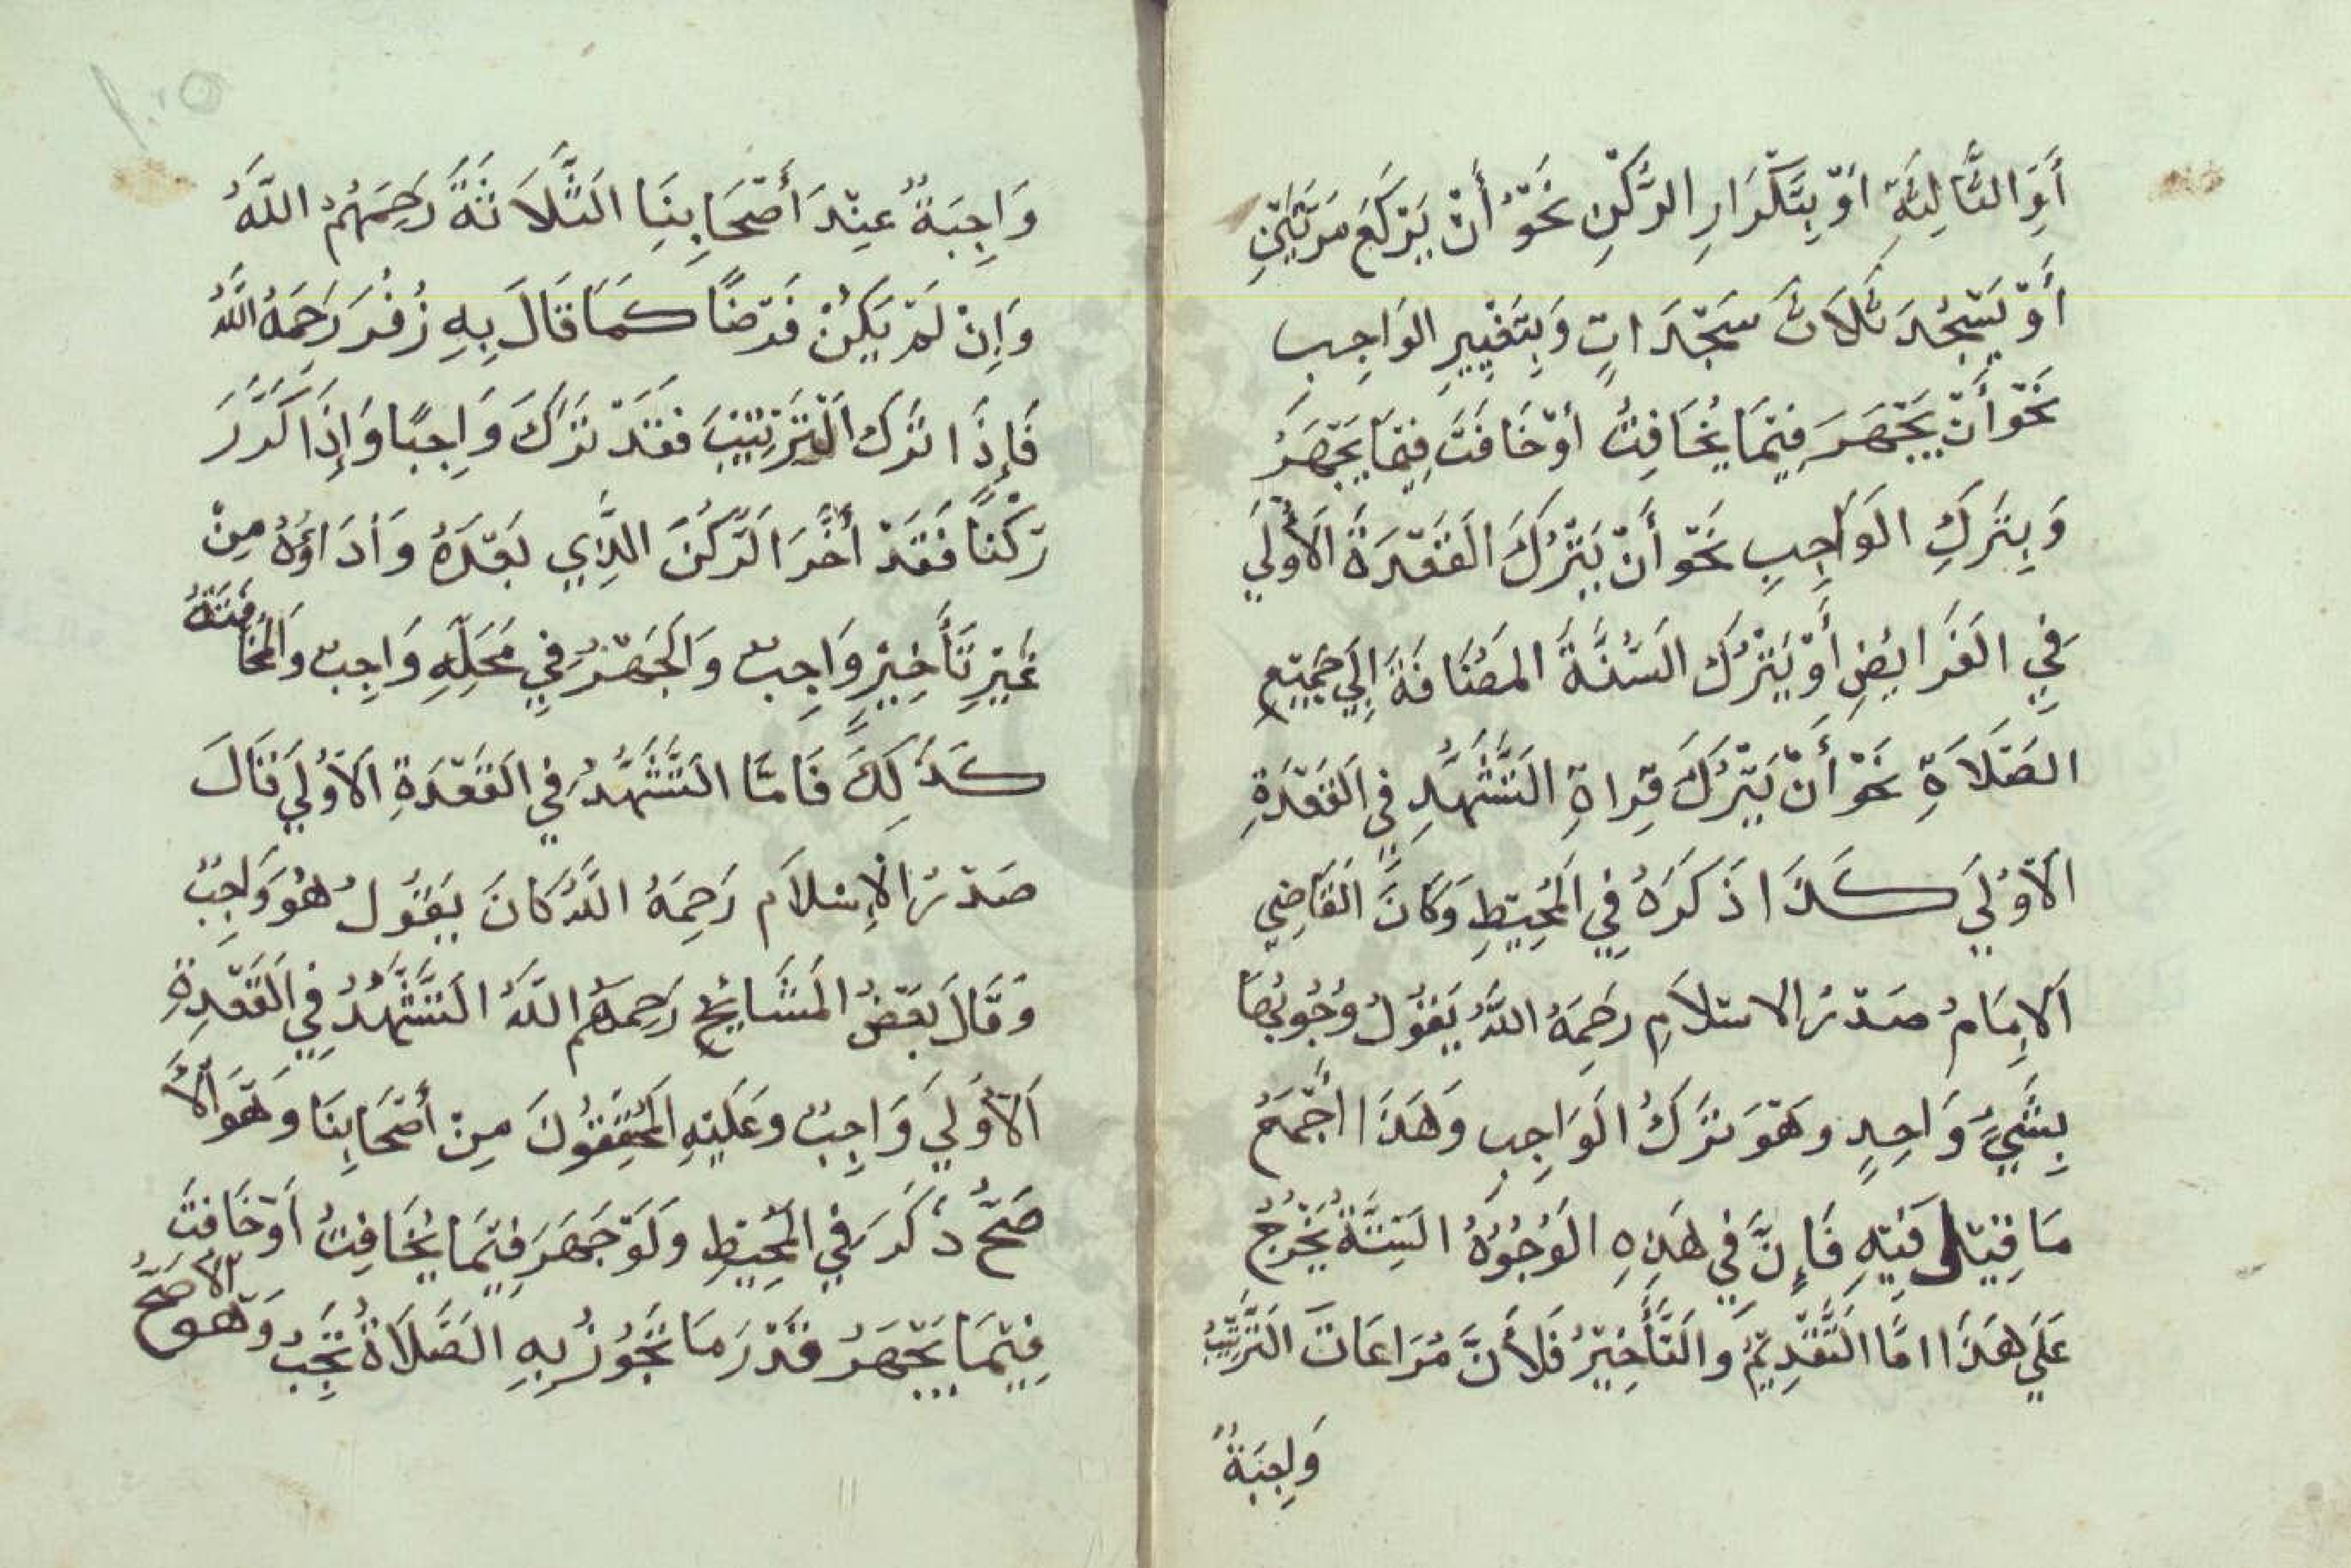 أَوِ التَّالِيَةِ اَوْ بِتَكْرَارِ الرُّكْنِ نَحْوُ أَنْ يَرْكَعَ مَرَتَيْنِ
أَوْ يَسْجُدَ ثَلَاثَ سَجْدَاتٍ وَبِتَغْيِيرِ الوَاجِبِ
نَحْوُ أَنْ يَجْهَرَ فِيْمَا يُخَافِتُ أَوْ خَافَتَ فِيْمَا يَجْهَرُ
وَبِتَركِ الوَاجِبِ نَحْوُ أَنْ يَتْرُكَ القَعْدَةَ الأُوْلَي
فِي الفَرَايِضِ أَوْ يَتْرُكَ السُّنَّةَ المُضَافَةَ إِلَي جَمِيْعِ
الصَّلَاةِ نَحْوُ أَنْ يَتْرُكَ قِرَاةِ التَّشَهُّدِ فِي القَعْدَةِ
الاُوْلَي كَذَا ذَكَرَهُ فِي المُحِيْطِ وَكَانَ القَاضِي
الاِمَامُ صَدْرُ الاسْلَامِ رَحِمَهُ اللَّهُ يَقُوْلُ وُجُوْبُهَا
بِشَيْءٍ وَاحِدٍ وَهُوَ تَرْكُ الوَاجِبِ وَهَذَا أَجْمَعُ
مَا قِيْلَ فِيْهِ فَإِنَّ فِي هَذِهِ الوُجُوْهُ السِتَّةُ يَخْرُجُ
عَلَي هَذَا امَّا التَّقْدِيْمُ وَالتَّأْخِيْرُ فَلأَنَّ مُرَاعَاتَ التَّرتِيْبِ
وَاجِبَةٌ
وَاجِبَةٌ عِنْدَ أَصْحَابِنَا الثَّلَاثَةَ رَحِمَهُمُ اللَّهُ
وَإِنْ لَمْ يَكُنْ فَرْضًا كَمَا قَالَ بِهِ زُفَرَ رَحِمَهُ اللَّهُ
فَإِذَا تَرَكَ التَّرْتِيْبَ فَقَدْ تَرَكَ وَاجِبًا وَإِذَا كَرَّرَ
رُكْنًا فَقَدْ أَخَّرَ الرُّكْنَ الَّذِي بَعْدَهُ وَأَدَاؤُهُ مِنْ
غَيْرِ تَأْخِيْرٍ وَاجِبٌ وَالجَهْرُ فِي مَحَلِّهِ وَاجِبٌ وَالمُخَافَتَةُ
كَذَلِكَ فَامَّا التَّشَهُّدُ فِي القَعْدَةِ الاُوْلَي قَالَ
صَدْرُ الإِسْلَام رَحِمَهُ اللَّهُ كَانَ يَقُوْلُ هُوَ وَاجِبٌ
وَقَالَ بَعْضُ المَشَايِخِ رَحِمَهُم اللَّهُ التَّشَهُّدُ فِي القَعْدَةِ
الاُوْلَي وَاجِبٌ وَعَلَيْهِ المُحَقِّقُوْنَ مِنْ أَصْحَابِنَا وَهُوَ الاَ
صَحُّ ذَكَرَ فِي المُحِيْطِ وَلَوْ جَهَرَ فِيْمَا يُخَافِتُ أَوْ خَافَتَ
فِيْمَا يَجْهَرُ قَدْرَ مَا تَجُوْزُ بِهِ الصَّلَاةُ تَجِبُ وَهُوَ الاَصَحُّ